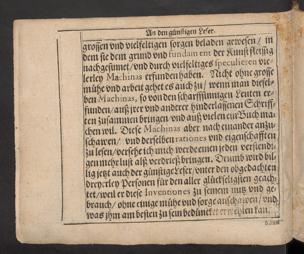 An den günstigen Leser.
grossen vnd vielfeltigen sorgen beladen gewesen / in
dem sie dem grund vnd fundament der Kunst fleissig
nachgesunnet / vnd durch vielfeltiges speculieren vie-
lerley Machinas erfunden haben. Nicht ohne grosse
mühe vnd arbeit gehet es auch zu / wenn man diesel-
ben Machinas, so von den scharffsinnigen Leuten er-
funden / auß jrer vnd anderer hinderlassenen Schriff-
ten zusammen bringen / vnd auß vielen ein Buch ma-
chen wil. Diese Machinas aber nach einander anzu-
schawen / vnd derselben rationes vnd eigenschafften
zu lesen / versehe ich mich werde einen jeden verstendi-
gen mehr lust als verdrieß bringen. Drumb wird bil-
lig jetzt auch der günstige Leser / vnter den obgedachten
dreyerley Personen für den aller glückseligsten geach-
tet / weil er diese Inventiones zu seinem nutz vnd ge-
brauch / ohne einige mühe vnd sorge anschawen / vnd
was jhm am besten zu sein bedüncket erwehlen kan.